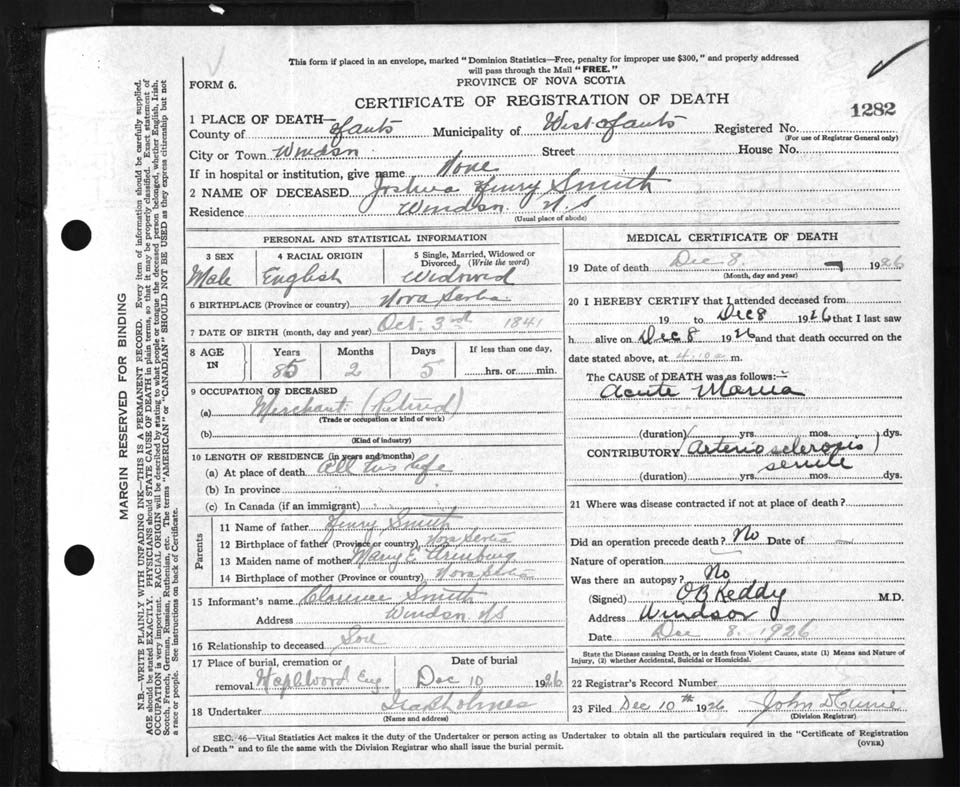 This form if placed in an envelope, marked "Dominion Statistics—Free, penalty for improper use $300," and properly addressed
will pass through the Mail "FREE."
FORM 6.
PROVINCE OF NOVA SCOTIA
CERTIFICATE OF REGISTRATION OF DEATH
1282
1 PLACE OF DEATH—
County of Hants Municipality of West Hants Registered No.
(For use of Registrar General only)
City or Town Windsor Street House No.
If in hospital or institution, give name None
2 NAME OF DECEASED Joshua Henry Smith
Residence Windsor. N.S
(Usual place of abode)
PERSONAL AND STATISTICAL INFORMATION
3 SEX 4 RACIAL ORIGIN 5 Single, Married, Widowed or
Divorced, (Write the word)
Male English Widowed
6 BIRTHPLACE (Province or country) Nova Scotia
7 DATE OF BIRTH (month, day and year) Oct. 3rd 1841
8 AGE IN Years Months Days If less than one day,
85 2 5 hrs. or min.
9 OCCUPATION OF DECEASED
(a) Merchant (Retired)
(Trade or occupation or kind of work)
(b)
(Kind of industry)
10 LENGTH OF RESIDENCE (in years and months)
(a) At place of death All his life
(b) In province
(c) In Canada (if an immigrant)
Parents
11 Name of father Henry Smith
12 Birthplace of father (Province or country) Nova Scotia
13 Maiden name of mother Mary E
14 Birthplace of mother (Province or country) Nova Scotia
15 Informant's name Clarence Smith
Address Windsor NS
16 Relationship to deceased Son
17 Place of burial, cremation or Date of burial
removal Maplewood Dec 10 1926
18 Undertaker
(Name and address)
MEDICAL CERTIFICATE OF DEATH
19 Date of death Dec 8. 1926
(Month, day and year)
20 I HEREBY CERTIFY that I attended deceased from
19 to Dec 8 1926 that I last saw
h alive on Dec 8 1926 and that death occurred on the
date stated above, at 4.10 m.
The CAUSE of DEATH was as follows:—
Acute Mania
(duration) yrs. mos. dys.
CONTRIBUTORY (Arterio sclerosis)
senile
(duration) yrs. mos. dys.
21 Where was disease contracted if not at place of death?
Did an operation precede death? No Date of —
Nature of operation
Was there an autopsy? No
(Signed) OB Keddy M.D.
Address Windsor
Date Dec 8. 1926
State the Disease causing Death, or in death from Violent Causes, state (1) Means and Nature of
Injury, (2) whether Accidental, Suicidal or Homicidal.
22 Registrar's Record Number
23 Filed Dec 10th 1926 John
(Division Registrar)
SEC. 46—Vital Statistics Act makes it the duty of the Undertaker or person acting as Undertaker to obtain all the particulars required in the "Certificate of Registration
of Death" and to file the same with the Division Registrar who shall issue the burial permit.
(OVER)
MARGIN RESERVED FOR BINDING
N.B.—WRITE PLAINLY WITH UNFADING INK—THIS IS A PERMANENT RECORD. Every item of information should be carefully supplied.
AGE should be stated EXACTLY. PHYSICIANS should STATE CAUSE OF DEATH in plain terms, so that it may be properly classified. Exact statement of
OCCUPATION is very important. RACIAL ORIGIN will be described by stating to what people or tongue the deceased person belonged, whether English, Irish,
Scotch, French, German, Russian, Ruthenian, etc. The terms "AMERICAN" or "CANADIAN" SHOULD NOT BE USED as they express citizenship but not
a race or people. See instructions on back of Certificate.